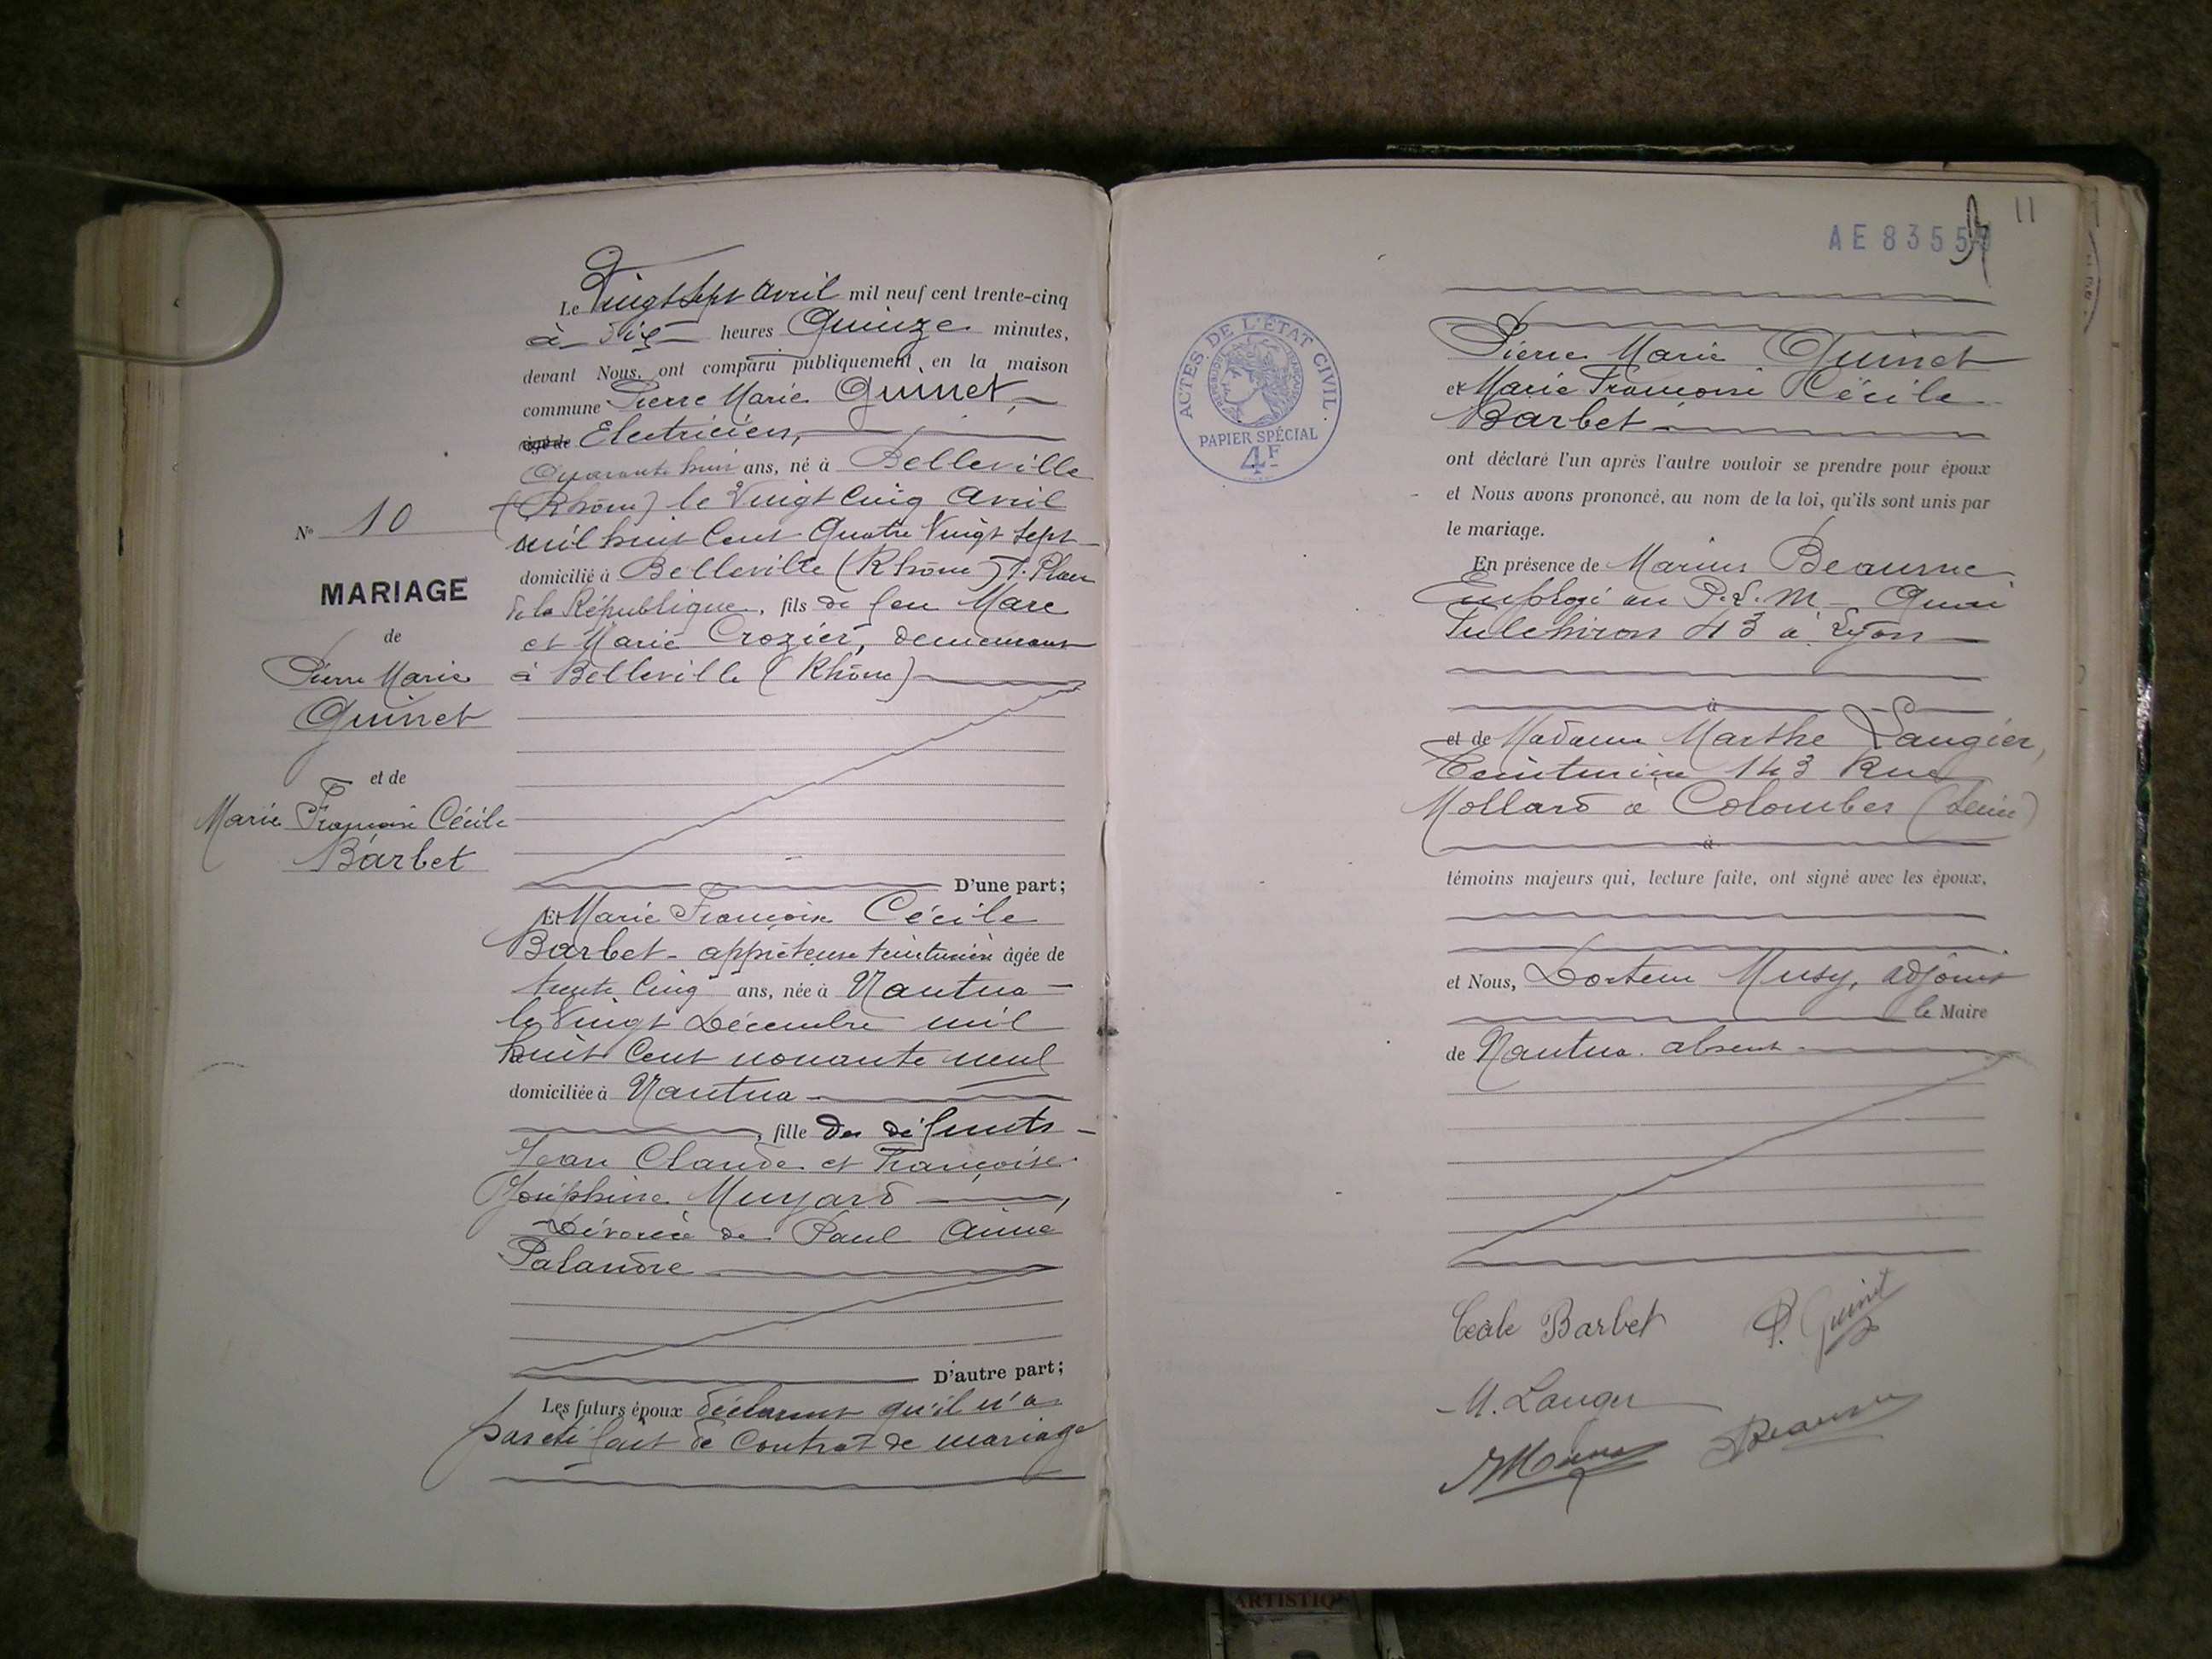 N° 10
MARIAGE
de
Pierre Marie
Guinet
et de
Marie Françoise Cécile
Barbet
Le Vingt sept avril mil neuf cent trente-cinq
à dix heures Quinze minutes,
devant Nous, ont comparu publiquement en la maison
commune Pierre Marie Guinet,
Electricien,
Quarante huit ans, né à Belleville
(Rhône) le Vingt Cinq Avril
mil huit Cent Quatre Vingt Sept
domicilié à Belleville (Rhône) Place
de la République, fils de feu Marc
et Marie Crozier, demeurant
à Belleville (Rhône)
D'une part;
Et Marie Françoise Cécile
Barbet - apprêteuse teinturière âgée de
trente Cinq ans, née à Nantua
le Vingt Décembre mil
huit Cent nonante neuf
domiciliée à Nantua
, fille des défunts
Jean Claude et Françoise
Joséphine Muyard,
Divorcée de Paul Aimé
Palandre
D'autre part;
Les futurs époux déclarent qu'il n'a
pas été fait de Contrat de mariage
AE 8355
11
ACTES DE L'ÉTAT CIVIL
RÉPUBLIQUE FRANÇAISE
PAPIER SPÉCIAL
4F
Pierre Marie Guinet
et Marie Françoise Cécile
Barbet
ont déclaré l'un après l'autre vouloir se prendre pour époux
et Nous avons prononcé, au nom de la loi, qu'ils sont unis par
le mariage.
En présence de Marius Beaume
Employé au P.L.M - Quai
Tulchiron 43 à Lyon
à
et de Madame Marthe Laugier,
Teinturière 143 Rue
Mollard à Colombes (Seine)
à
témoins majeurs qui, lecture faite, ont signé avec les époux,
et Nous, Docteur Musy, adjoint
le Maire
de Nantua absent
Cécile Barbet P. Guinet
M. Laugier
Beaume
ARTISTIQ